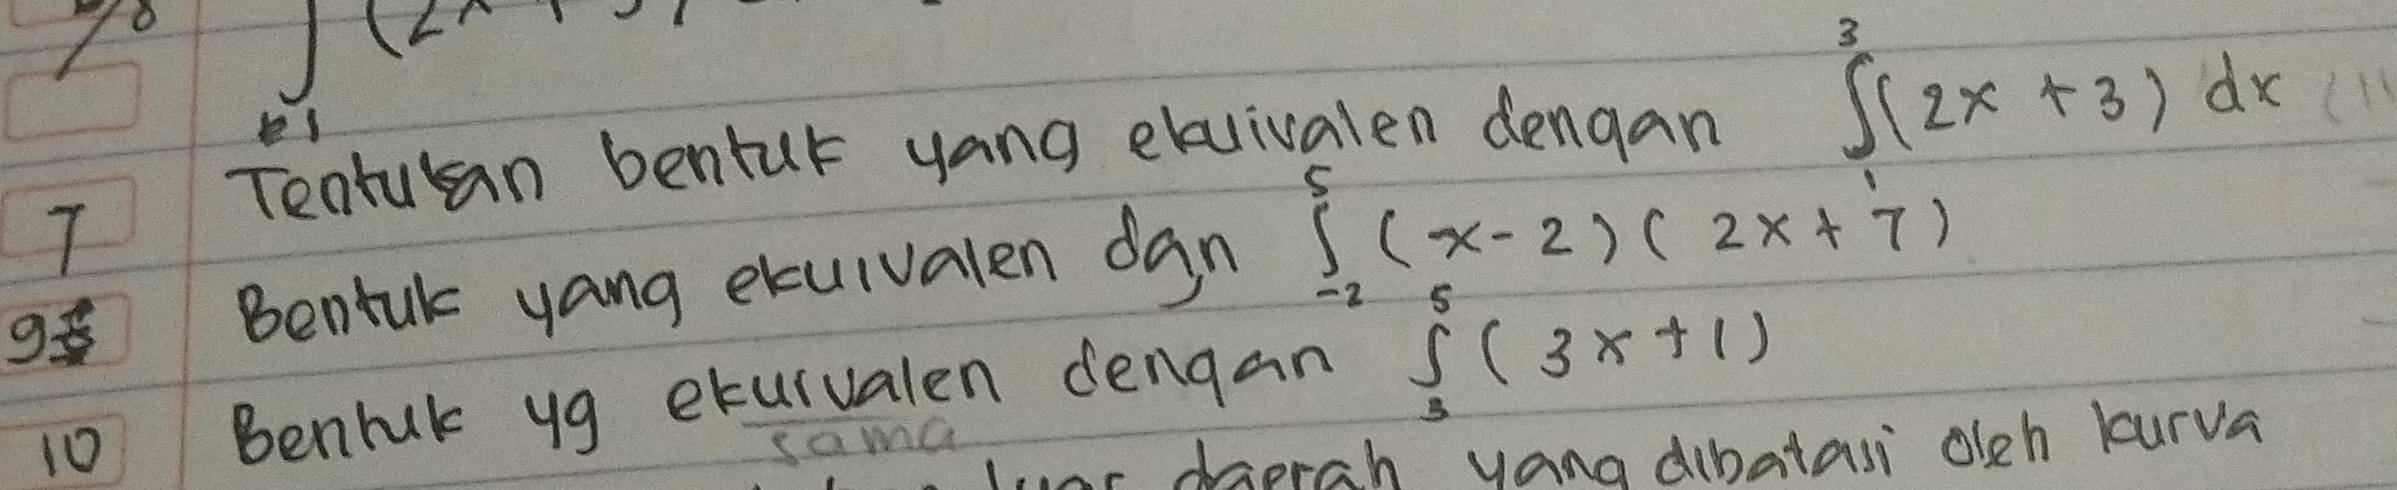 7 Tentukan bentuk yang ekuivalen dengan ∫₁³ (2x + 3) dx
9 Bentuk yang ekuivalen dgn ∫₋₂⁵ (x - 2) ( 2x + 7)
10 Bentuk yg ekuivalen dengan ∫₃⁵ ( 3x + 1)
sama
luas daerah yang dibatasi oleh kurva